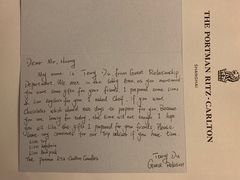 Dear Mr, Huang
My name is Tong Du from Guest Relationship
Department. We met in the lobby area, as you mentioned
you want some gifts for your friends. I prepared some lions
& lion keychain for you. I asked Chef, if you want
Chocolates which should need days to prepare for you. Because
you are leaving for today, the time will not enough. I hope
you will like the gifts I prepared for your friends. Please
leave any comment for our Trip advisor if you have time.
Lion
Lion keychain
Lion
The Portman Ritz-Carlton Candles
Tong Du
Guest Relation
THE PORTMAN RITZ-CARLTON
SHANGHAI